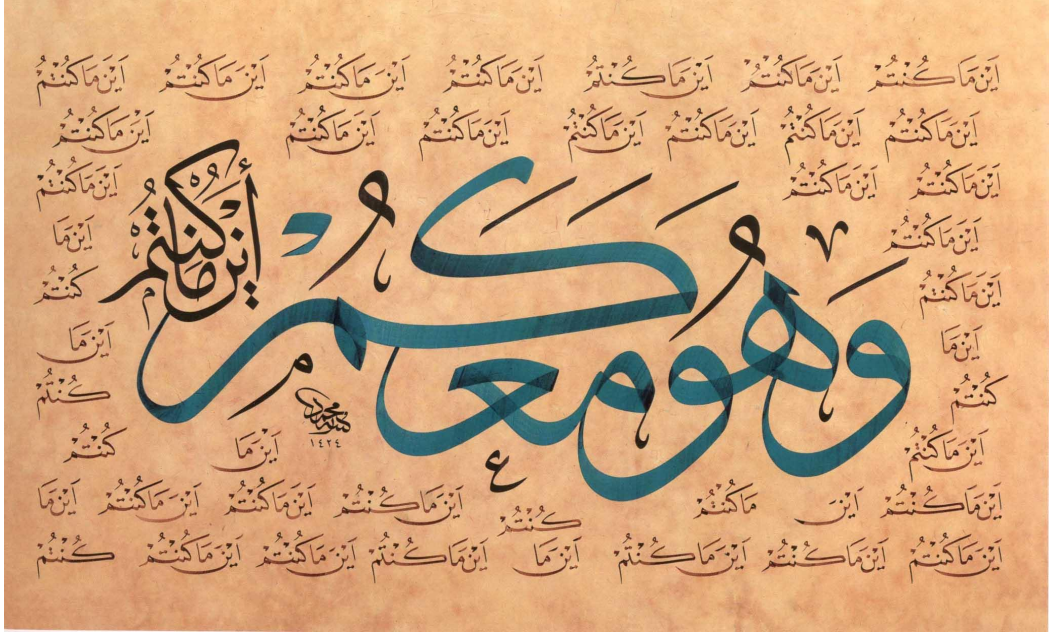 اَيْنَ مَا كُنْتُمْ اَيْنَ مَا كُنْتُمْ اَيْنَ مَا كُنْتُمْ اَيْنَ مَا كُنْتُمْ اَيْنَ مَا كُنْتُمْ اَيْنَ مَا كُنْتُمْ اَيْنَ مَا كُنْتُمْ
اَيْنَ مَا كُنْتُمْ اَيْنَ مَا كُنْتُمْ اَيْنَ مَا كُنْتُمْ اَيْنَ مَا كُنْتُمْ اَيْنَ مَا كُنْتُمْ اَيْنَ مَا كُنْتُمْ اَيْنَ مَا كُنْتُمْ
اَيْنَ مَا كُنْتُمْ اَيْنَ مَا كُنْتُمْ اَيْنَ مَا كُنْتُمْ
اَيْنَ مَا كُنْتُمْ اَيْنَ مَا
اَيْنَ مَا كُنْتُمْ كُنْتُمْ
وَهُوَ مَعَكُمْ أَيْنَ مَا كُنْتُمْ
اَيْنَ مَا اَيْنَ مَا
كُنْتُمْ كُنْتُمْ
١٤٢٤
اَيْنَ مَا كُنْتُمْ اَيْنَ مَا كُنْتُمْ
اَيْنَ مَا كُنْتُمْ اَيْنَ مَا كُنْتُمْ كُنْتُمْ اَيْنَ مَا كُنْتُمْ اَيْنَ مَا كُنْتُمْ اَيْنَ مَا كُنْتُمْ اَيْنَ مَا
اَيْنَ مَا كُنْتُمْ اَيْنَ مَا كُنْتُمْ اَيْنَ مَا كُنْتُمْ اَيْنَ مَا اَيْنَ مَا كُنْتُمْ اَيْنَ مَا كُنْتُمْ اَيْنَ مَا كُنْتُمْ كُنْتُمْ